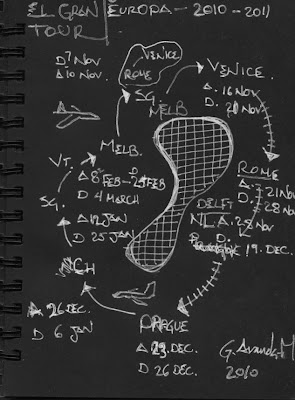 EL GRAN EUROPA - 2010 - 2011
TOUR.
VENICE
ROME
D 7 NOV
A 10 NOV.
SG.
MELB
VENICE.
A. 16 NOV
D. 21 NOV
MELB.
VT.
A 8 FEB - 25 FEB
D 4 MARCH
SG.
A 12 JAN
D 25 JAN
ROME
A. 21 NOV
D. 28 NOV
DELFT
NL. A. 28 NOV
D. 19. DEC.
A 26 DEC.
D 6 JAN
PRAGUE
A 23. DEC.
D 26 DEC.
2010